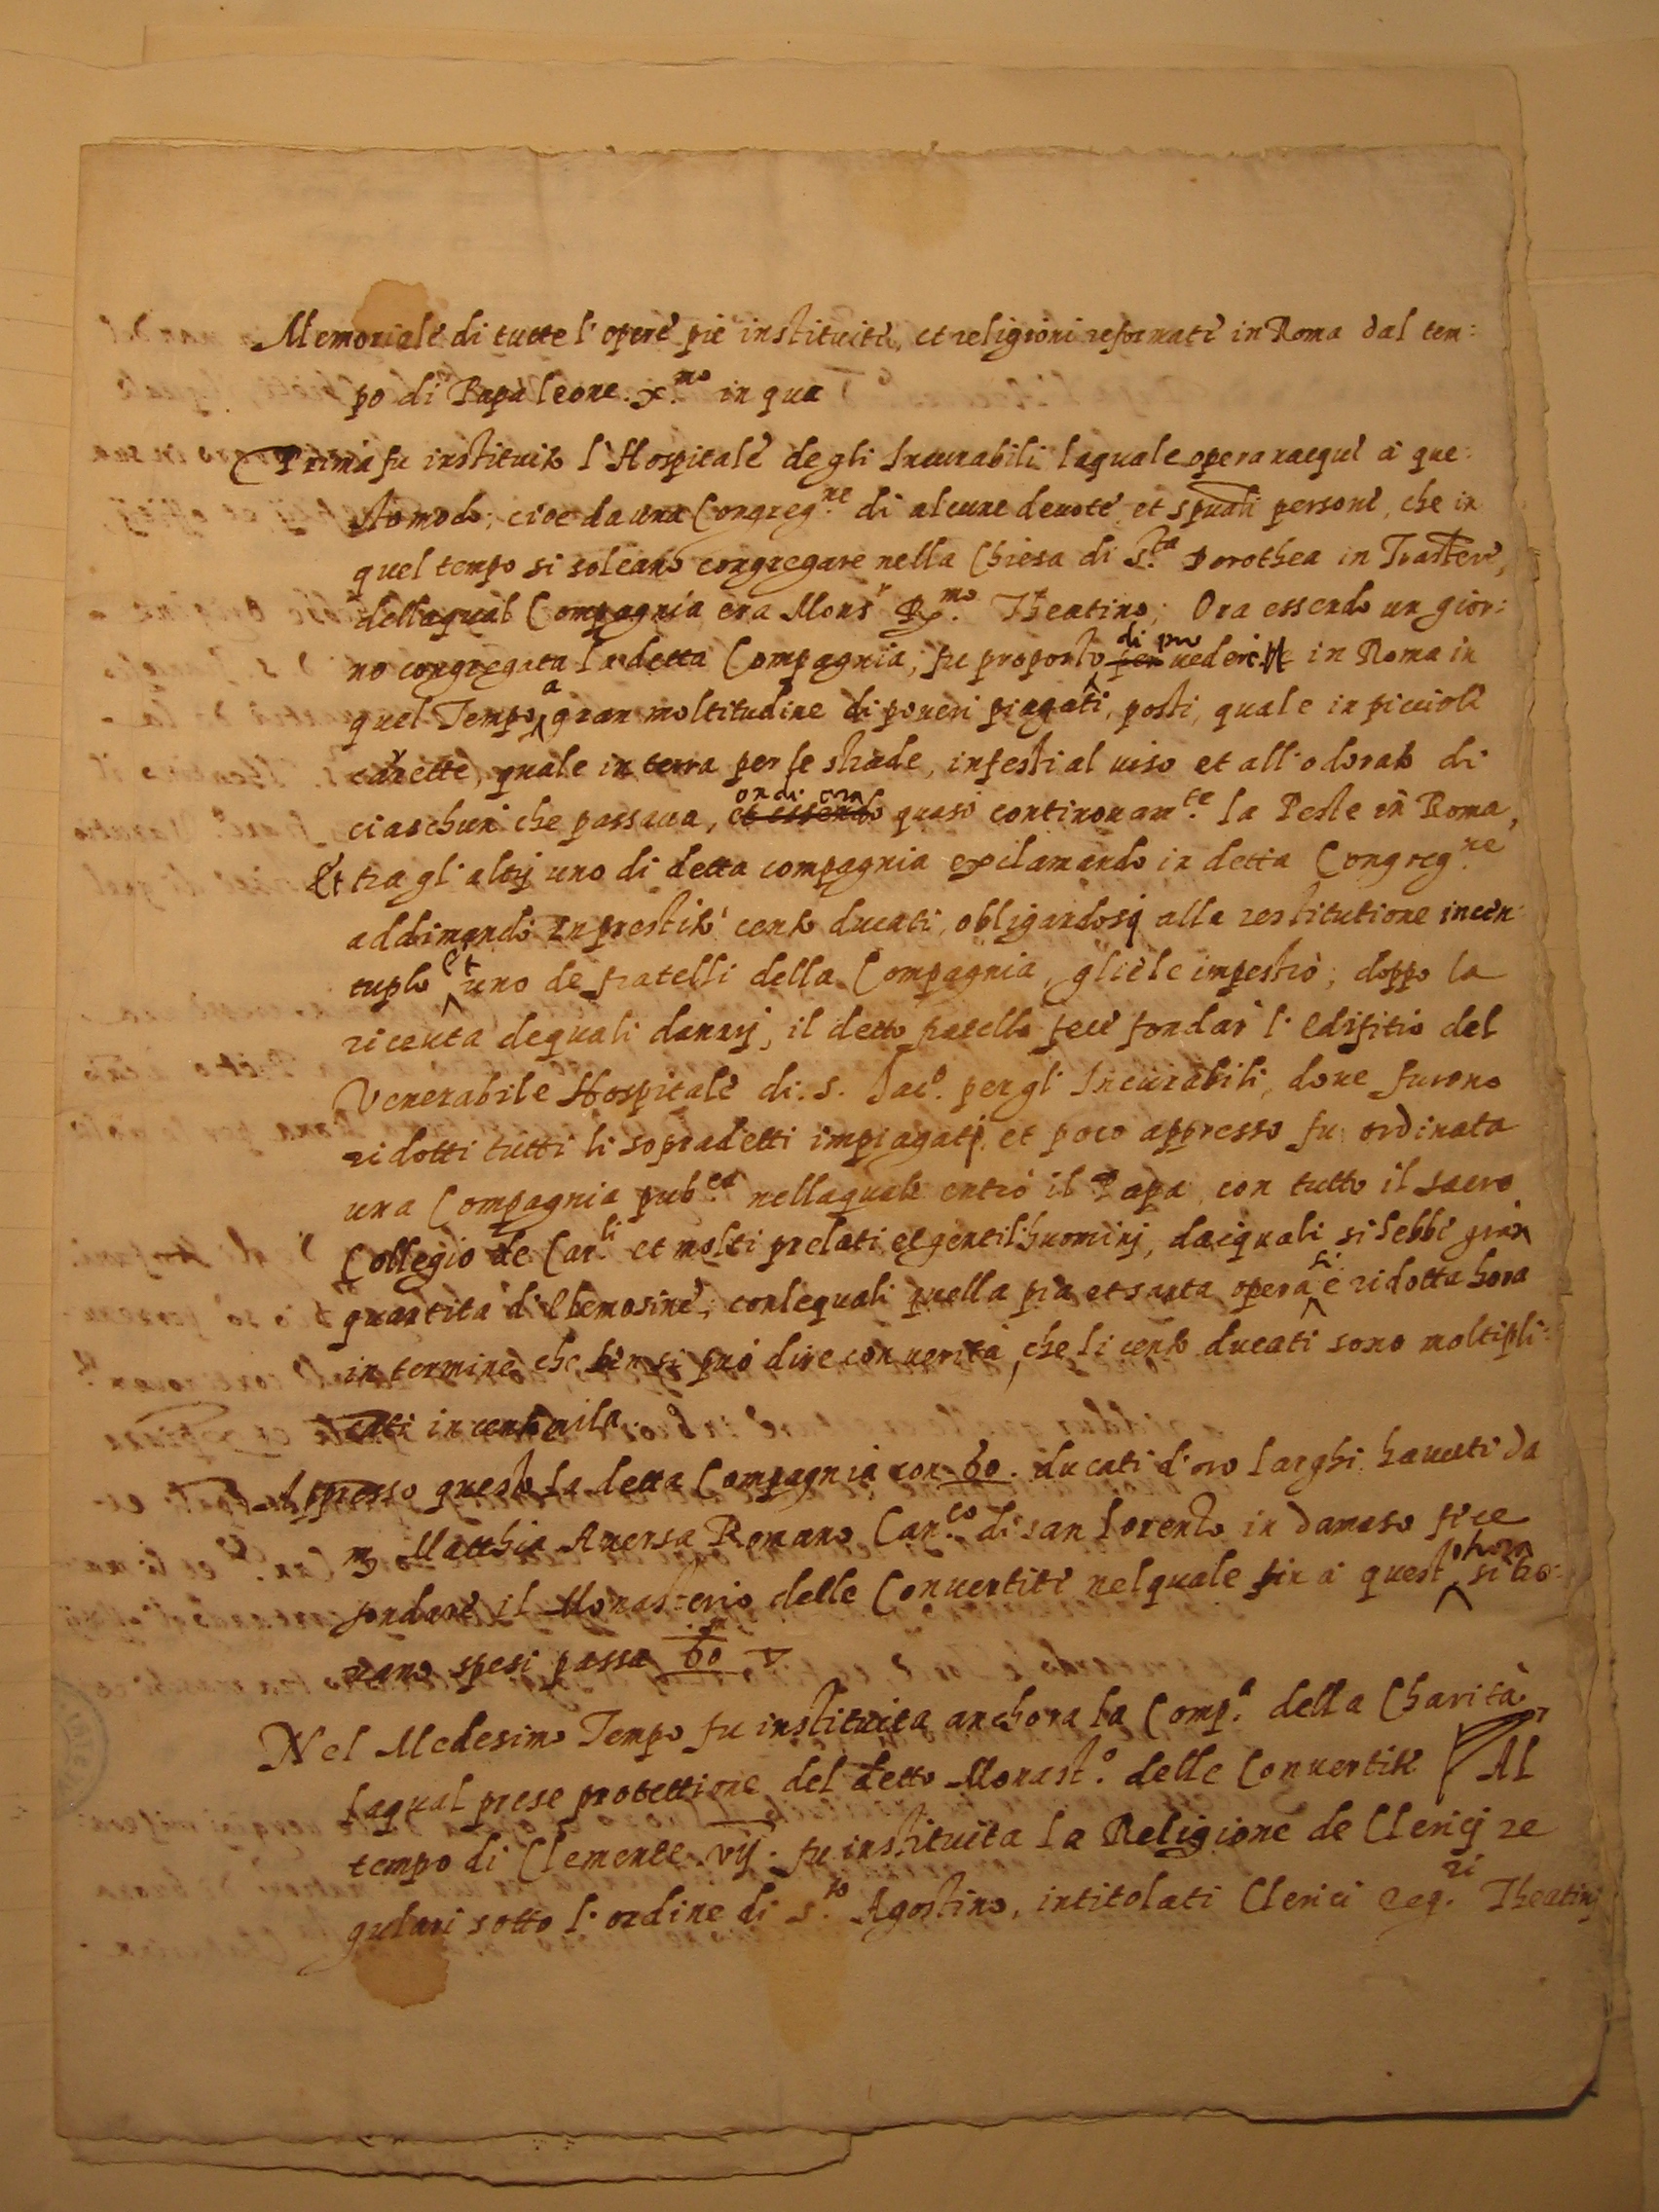 Memoriale di tutte l'opere pie instituite, et religioni reformate in Roma dal tem:
po di Papa Leone .x.mo in qua
Prima fu instituito l'Hospitale degli Incurabili laquale opera nacque à que:
sto modo; cioe da una Congreg.ne di alcune devote et sp̄uali persone, che in
quel tempo si soleano congregare nella Chiesa di S.ta Dorothea in Trastevere,
dellaqual Compagnia era Mons.r R.mo Theatino; Ora essendo un gior:
no congregata la detta Compagnia, fu proposto di pro per vedere in Roma in
quel Tempo a gran moltitudine di poveri piagati, posti, quale in picciole
carette, quale in terra per le strade, infesti al viso et all'odorato di
ciaschun che passava, ondi era et essendo quasi continovam.te la Peste in Roma,
Et tra gl'altrj uno di detta compagnia exclamando in detta Congreg.ne
addimandò in prestito cento ducati, obligandosj alla restitutione in cen:
tuplo et uno de fratelli della Compagnia, gliele imprestò; doppo la
ricevuta dequali danarj, il detto fratello fece fondar l'Edifitio del
Venerabile Hospitale di .S. Jac.o per gl'Incurabili, dove furono
ridotti tutti li sopradetti impiagatj. et poco appresso fu ordinata
una Compagnia pub.ca nellaquale entrò il Papa, con tutto il sacro
Collegio de Car.li et molti prelati et gentilhuominj, daiquali si hebbe gran
quantita di Elemosine, conlequali quella pia et santa opera si è ridotta hora
in termine che ben si può dire con verità, che li cento ducati sono moltipli:
cati in cento mila.
Appresso questo la detta Compagnia con .60. ducati d'oro larghi havuti da
m Matthia Aversa Romano Can.co di san Lorento in damaso fece
fondare il Monasterio delle Convertite nelquale fin à quest'hora si tro:
vano spesi passa 60
Nel Medesimo Tempo fu instituita anchora la Comp.a della Charità
laqual prese protettione del detto Monast.o delle Convertite Al
tempo di Clemente .vij. fu instituita la Religione de Clerici re
gulari sotto l'ordine di S.to Agostino, intitolati Clerici Reg.ri Theatinj